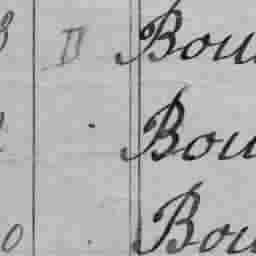 D Bou
Bou
0 Bou